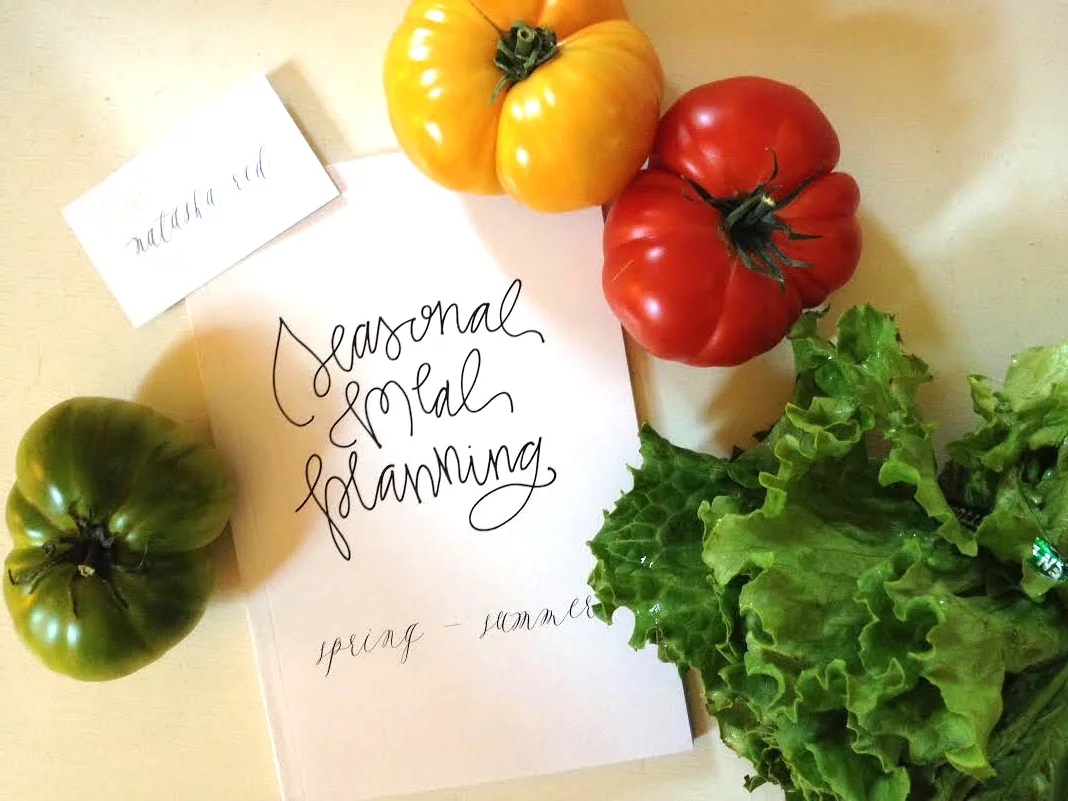 natasha red
Seasonal
Meal
planning
spring – summer